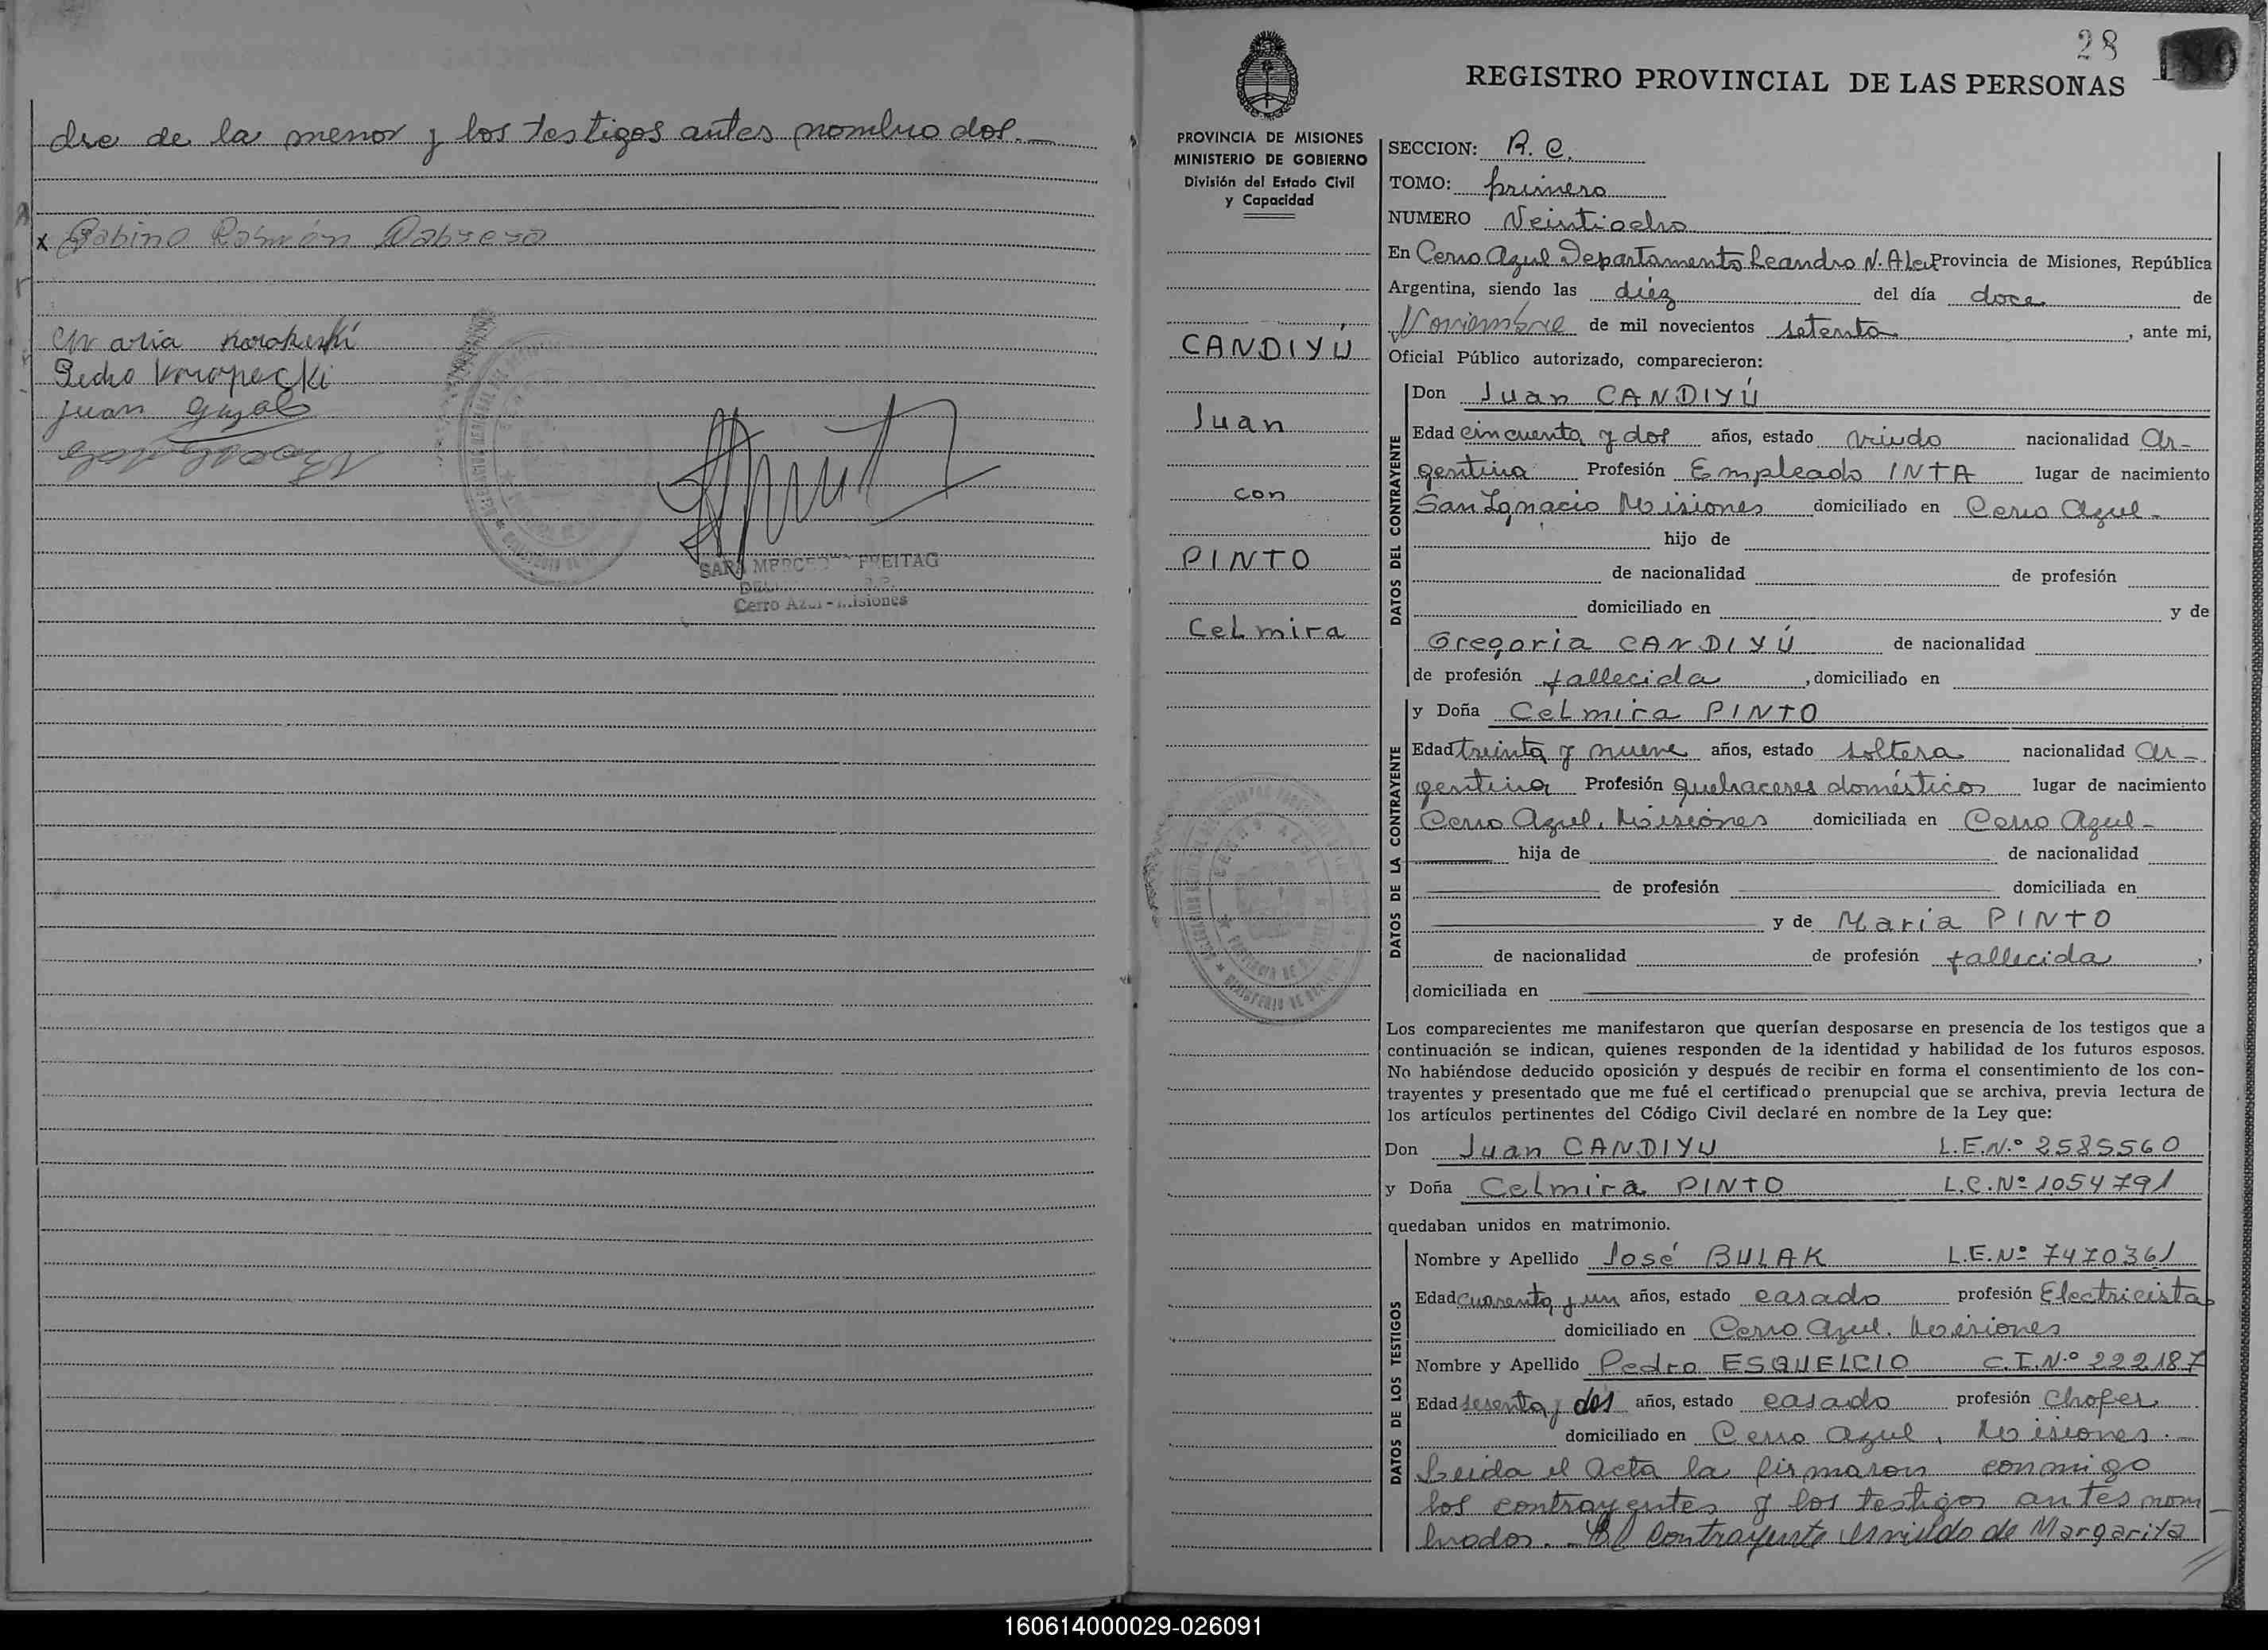 dre de la menor y los testigos antes nombrados.
x Gabino Ramón Cabrera
Maria
Pedro
Juan
SARA MERCEDES FREITAG
Cerro Azul - Misiones
28
REGISTRO PROVINCIAL DE LAS PERSONAS
PROVINCIA DE MISIONES
MINISTERIO DE GOBIERNO
División del Estado Civil
y Capacidad
CANDIYÚ
Juan
con
PINTO
Celmira
SECCION: R. C.
TOMO: primero
NUMERO Veintiocho
En Cerro Azul Departamento Leandro N. Alem Provincia de Misiones, República
Argentina, siendo las diéz del día doce de
Noviembre de mil novecientos setenta, ante mi,
Oficial Público autorizado, comparecieron:
DATOS DEL CONTRAYENTE
Don Juan CANDIYÚ
Edad cincuenta y dos años, estado viudo nacionalidad Ar-
gentina Profesión Empleado INTA lugar de nacimiento
San Ignacio Misiones domiciliado en Cerro Azul -
hijo de
de nacionalidad de profesión
domiciliado en y de
Gregoria CANDIYÚ de nacionalidad
de profesión fallecida, domiciliado en
DATOS DE LA CONTRAYENTE
y Doña Celmira PINTO
Edad treinta y nueve años, estado soltera nacionalidad Ar-
gentina Profesión quehaceres domésticos lugar de nacimiento
Cerro Azul, Misiones domiciliada en Cerro Azul -
hija de de nacionalidad
de profesión domiciliada en
y de Maria PINTO
de nacionalidad de profesión fallecida,
domiciliada en
Los comparecientes me manifestaron que querían desposarse en presencia de los testigos que a
continuación se indican, quienes responden de la identidad y habilidad de los futuros esposos.
No habiéndose deducido oposición y después de recibir en forma el consentimiento de los con-
trayentes y presentado que me fué el certificado prenupcial que se archiva, previa lectura de
los artículos pertinentes del Código Civil declaré en nombre de la Ley que:
Don Juan CANDIYU L.E.N.º 2585560
y Doña Celmira PINTO L.C.Nº 1054791
quedaban unidos en matrimonio.
DATOS DE LOS TESTIGOS
Nombre y Apellido José BULAK L.E.Nº 7470361
Edad cuarenta y un años, estado casado profesión Electricista
domiciliado en Cerro Azul. Misiones
Nombre y Apellido Pedro ESQUEICIO C.I.N.º 222187
Edad sesenta y dos años, estado casado profesión Chofer
domiciliado en Cerro Azul, Misiones.
Leida el Acta la firmaron conmigo
los contrayentes y los testigos antes nom
brados. - El contrayente es viudo de Margarita
160614000029-026091